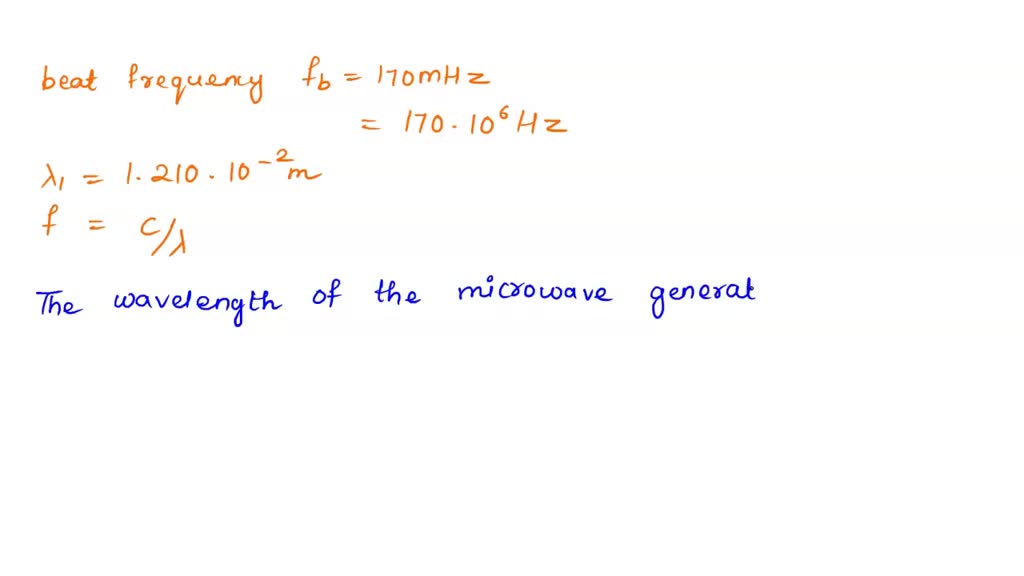 beat frequency f_b = 170mHz
= 170 · 10⁶ Hz
λ₁ = 1.210 · 10⁻² m
f = C/λ
The wavelength of the microwave generat